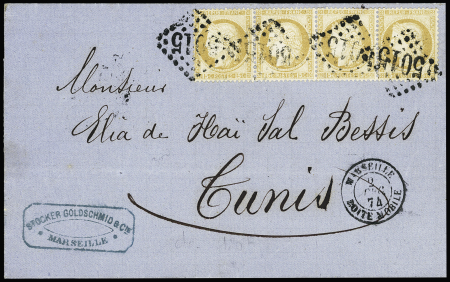 5015
5015
Monsieur
Elia de Haï Sal Bessis
Tunis
MARSEILLE
2
74
BOITE MOBILE
STOCKER GOLDSCHMID & Cie
MARSEILLE